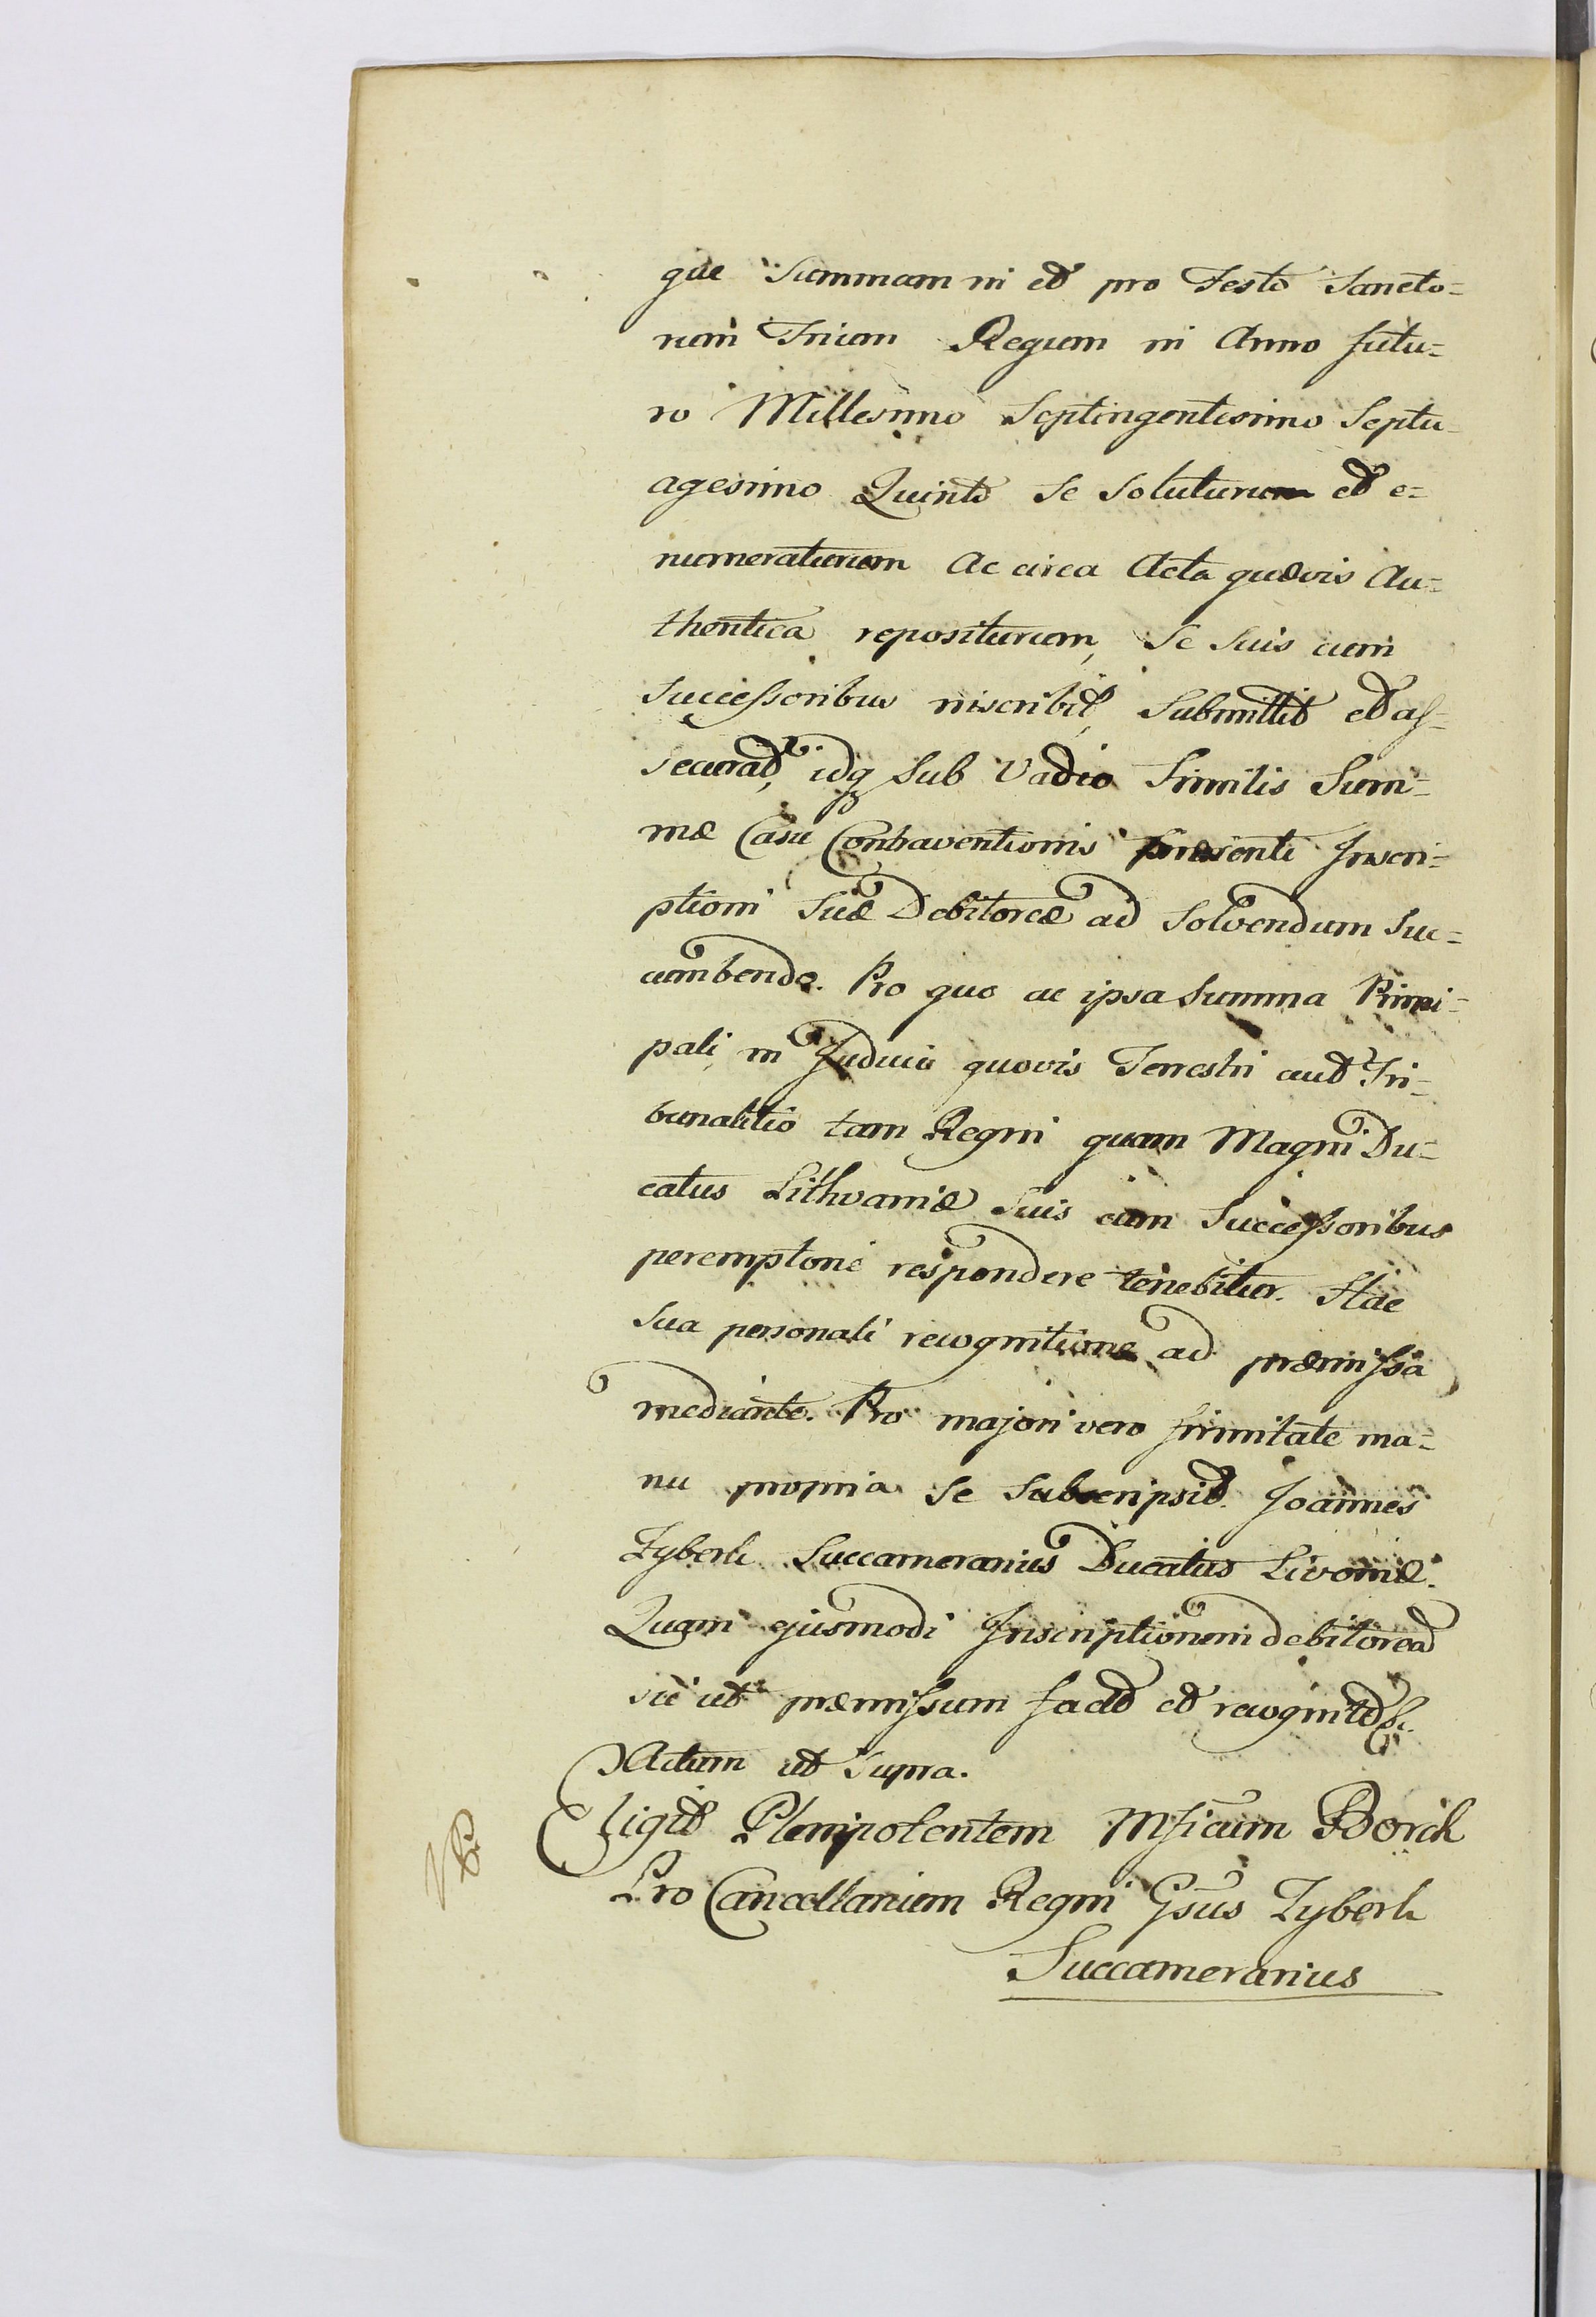 que Summam in et pro Festo Sancto=
rum Trium Regum in Anno futu=
ro Millesimo Septingentesimo Septu=
agesimo Quinto se soluturum et e=
numeraturum Ac circa Acta quævis Au=
thentica repositurum, se suis cum
Successoribus inscribit, Submittit et as=
securat, idq Sub Vadio Similis Sum=
mæ Casu Contraventionis præsenti Inscri=
ptioni Suæ Debitoreæ ad Solvendum suc=
cumbendo. Pro quo ac ipsa Summa Princi=
pali, in Judicio quovis Terrestri aut Tri=
bunalitio tam Regni quam Magni Du=
catus Lithvaniæ Suis cum Successoribus
peremptorie respondere tenebitur. Hac
sua personali recognitione ad præmissa
mediante. Pro majori vero firmitate ma=
nu propria se Subscripsit. Joannes
Zyberk Succamerarius Ducatus Livoniæ.
Quam ejusmodi Inscriptionem debitoream
sic ut præmissum facit et recognit
Actum ut Supra.
Eligit Plenipotentem Mficum Borch
Pro Cancellarium Regni Gsus Zyberk
Succamerarius